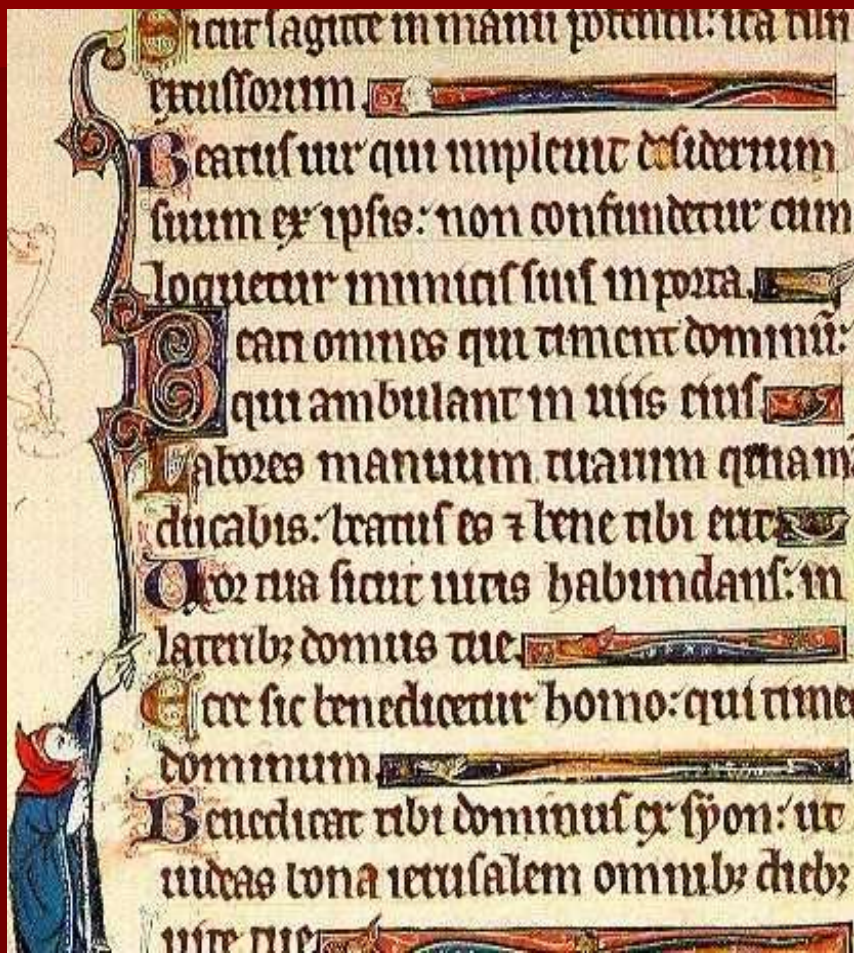 Sicut sagitte in manu potentis: ita filii
excussorum.
Beatus uir qui impleuit desiderium
suum ex ipsis: non confundetur cum
loquetur inimicis suis in porta.
Beati omnes qui timent dominū:
qui ambulant in uiis eius.
Labores manuum tuarum quia mā
ducabis: beatus es ⁊ bene tibi erit.
Uxor tua sicut uitis habundans: in
laterib; domus tue.
Ecce sic benedicetur homo: qui time
dominum.
Benedicat tibi dominus ex syon: ut
uideas bona ierusalem omnib; dieb;
uite tue.